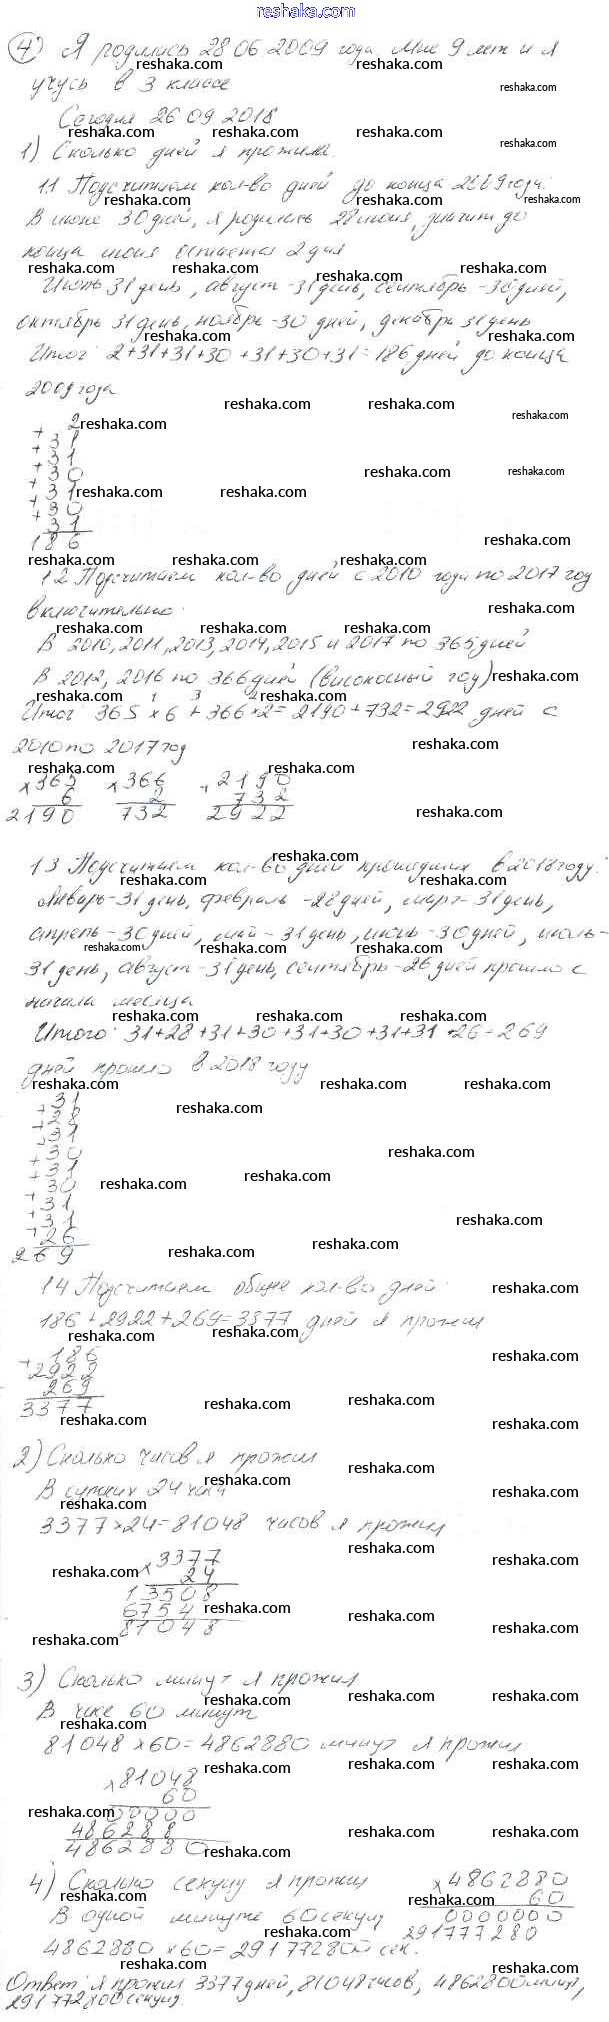 reshaka.com
4) Я родилась 28.06.2009 года. Мне 9 лет и я
учусь в 3 классе
Сегодня 26.09.2018
1) Сколько дней я прожила.
1.1 Подсчитаем кол-во дней до конца 2009 года.
В июне 30 дней, я родилась 28 июня, значит до
конца июня остается 2 дня
Июль 31 день, август - 31 день, сентябрь - 30 дней,
октябрь 31 день, ноябрь - 30 дней, декабрь 31 день
Итог: 2+31+31+30+31+30+31=186 дней до конца
2009 года
2
+31
+31
+30
+31
+30
+31
186
1.2 Подсчитаем кол-во дней с 2010 года по 2017 год
включительно:
В 2010, 2011, 2013, 2014, 2015 и 2017 по 365 дней
В 2012, 2016 по 366 дней (високосный год)
Итог: 365 × 6 + 366 × 2 = 2190 + 732 = 2922 дней с
2010 по 2017 год
×365 ×366 +2190
6 2 732
2190 732 2922
1.3 Подсчитаем кол-во дней прошедших в 2018 году:
Январь - 31 день, февраль - 28 дней, март - 31 день,
апрель - 30 дней, май - 31 день, июнь - 30 дней, июль -
31 день, август - 31 день, сентябрь - 26 дней прошло с
начала месяца
Итого: 31+28+31+30+31+30+31+31+26=269
дней прошло в 2018 году
31
+28
+31
+30
+31
+30
+31
+31
+26
269
1.4 Подсчитаем общее кол-во дней
186+2922+269=3377 дней я прожил
+186
2922
269
3377
2) Сколько часов я прожил
В сутках 24 часа
3377×24=81048 часов я прожил
×3377
24
13508
6754
81048
3) Сколько минут я прожил
В часе 60 минут
81048×60=4862880 минут я прожил
×81048
60
00000
486288
4862880
4) Сколько секунд я прожил
В одной минуте 60 секунд
4862880×60=291772800 сек.
×4862880
60
0000000
291777280
Ответ: я прожил 3377 дней, 81048 часов, 4862800 минут,
291772800 секунд.